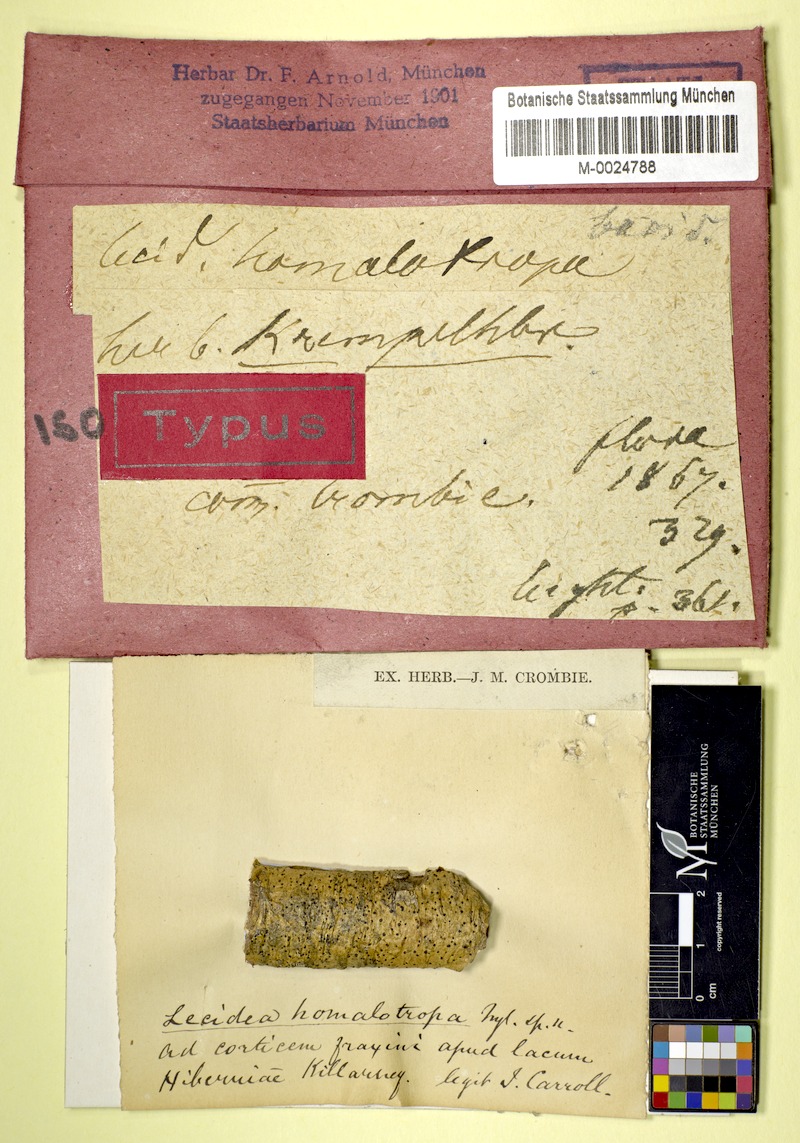 Herbar Dr. F. Arnold, München
zugegangen November 1901
Staatsherbarium München
Botanische Staatssammlung München
M-0024788
Lecid. homalotropa
herb. Krempelhbr.
150
Typus
flora
1867.
329.
com. Crombie.
Leight.
p. 361.
EX. HERB.—J. M. CROMBIE.
BOTANISCHE
STAATSSAMMLUNG
MÜNCHEN
copyright reserved
0 1 2
cm
Lecidea homalotropa Nyl. sp. n.
Ad corticem fraxini apud lacum
Hiberniae Killarney. legit I. Carroll.